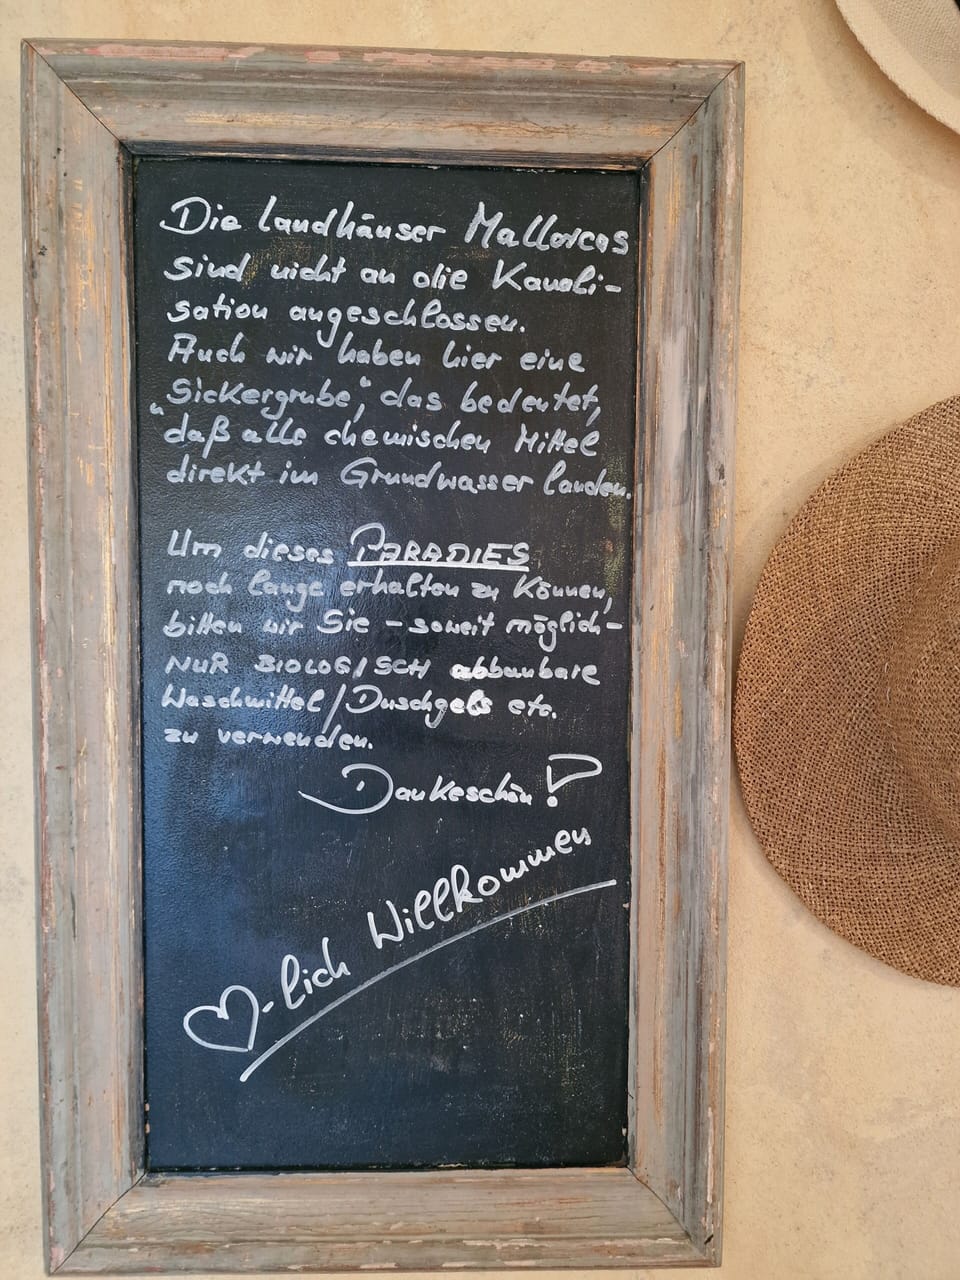 Die Landhäuser Mallorcas
sind nicht an die Kanali-
sation angeschlossen.
Auch wir haben hier eine
„Sickergrube“, das bedeutet,
daß alle chemischen Mittel
direkt im Grundwasser landen.
Um dieses PARADIES
noch lange erhalten zu können,
bitten wir Sie - soweit möglich -
NUR BIOLOGISCH abbaubare
Waschmittel/Duschgels etc.
zu verwenden.
Dankeschön!
♡-lich Willkommen